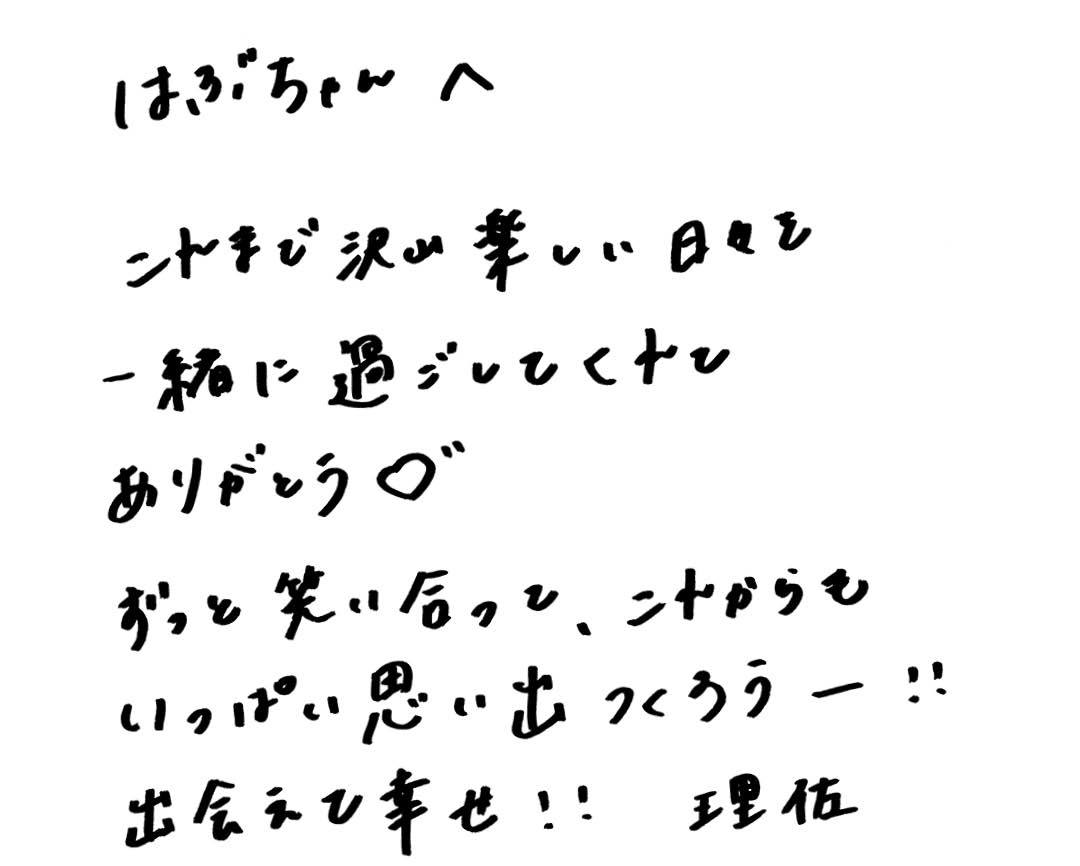 はぶちゃんへ
これまで沢山楽しい日々を
一緒に過ごしてくれて
ありがとう♡"
ずっと笑い合って、これからも
いっぱい思い出つくろうー!!
出会えて幸せ!! 理佐